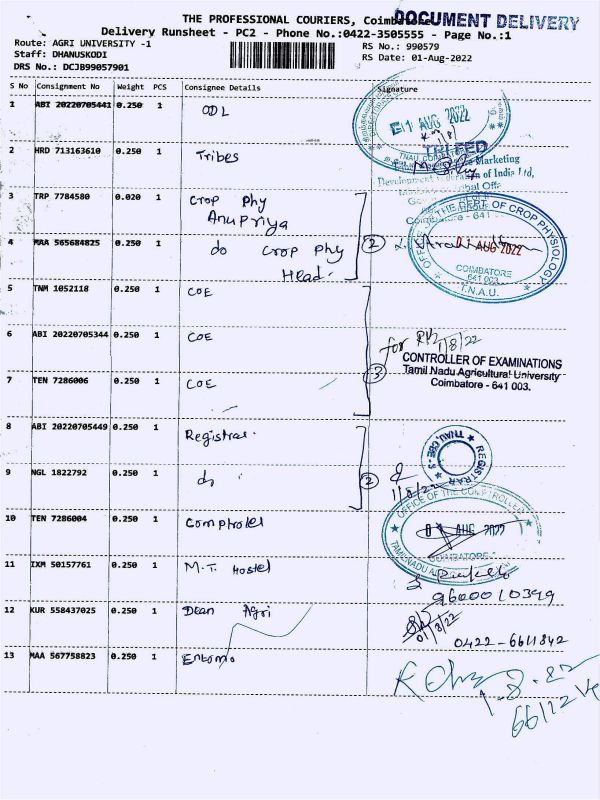 THE PROFESSIONAL COURIERS, Coimbatore
DOCUMENT DELIVERY
Delivery Runsheet - PC2 - Phone No.:0422-3505555 - Page No.:1
Route: AGRI UNIVERSITY -1
RS No.: 990579
Staff: DHANUSKODI
RS Date: 01-Aug-2022
DRS No.: DCJB99057901
S No Consignment No Weight PCS Consignee Details Signature
1 ABI 20220705441 0.250 1 ODL
01 AUG 2022
2 HRD 713163610 0.250 1 Tribes
TRIFED
Marketing
Development of India Ltd,
3 TRP 7784580 0.020 1 Crop Phy
Anupriya
Coimbatore - 641
OFFICE OF THE DEPT. OF CROP PHYSIOLOGY
4 MAA 565684825 0.250 1 do Crop Phy
Head.
2
01 AUG 2022
COIMBATORE
641 003.
T.N.A.U.
5 TNM 1052118 0.250 1 COE
6 ABI 20220705344 0.250 1 COE
for
1/8/22
CONTROLLER OF EXAMINATIONS
Tamil Nadu Agricultural University
Coimbatore - 641 003.
7 TEN 7286006 0.250 1 COE
3
8 ABI 20220705449 0.250 1 Registrar.
REGISTRAR
TNAU, CBE-3
9 NGL 1822792 0.250 1 do
2
1/8/22
10 TEN 7286004 0.250 1 Comptroler
OFFICE OF THE COMPTROLLER
01 AUG 2022
COIMBATORE
11 IXM 50157761 0.250 1 M.T. Hostel
9600010399
12 KUR 558437025 0.250 1 Dean Agri
01/8/22
0422-6611842
13 MAA 567758823 0.250 1 Entomo
1-8-22